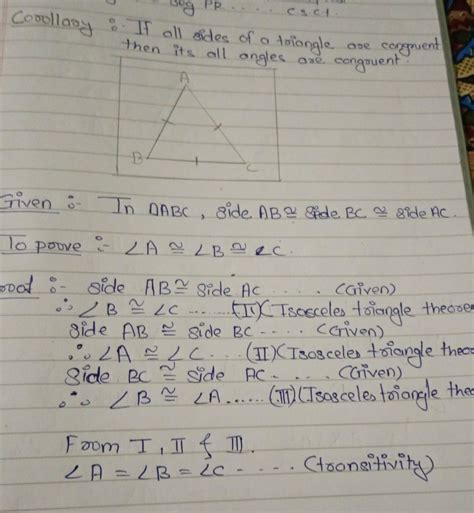 seg PR ..... c.s.c.t.
Corollary :- If all sides of a triangle are congruent
then its all angles are congruent.
A
B
C
Given :- In ΔABC, side AB ≅ side BC ≅ side AC.
To poove :- ∠A ≅ ∠B ≅ ∠C.
ood :- side AB ≅ side AC ..... (Given)
∴ ∠B ≅ ∠C ...... (I) (Isosceles triangle theore
side AB ≅ side BC .... (Given)
∴ ∠A ≅ ∠C ... (II) (Isosceles triangle theo
side BC ≅ side AC .... (Given)
∴ ∠B ≅ ∠A ...... (III) (Isosceles triangle the
From I, II & III.
∠A = ∠B = ∠C ..... (transitivity)